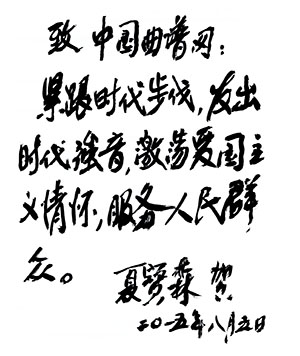 致 中国曲谱网：
紧跟时代步伐，发出
时代强音，激荡爱国主
义情怀，服务人民群
众。
夏贤森 贺
二〇一五年八月五日